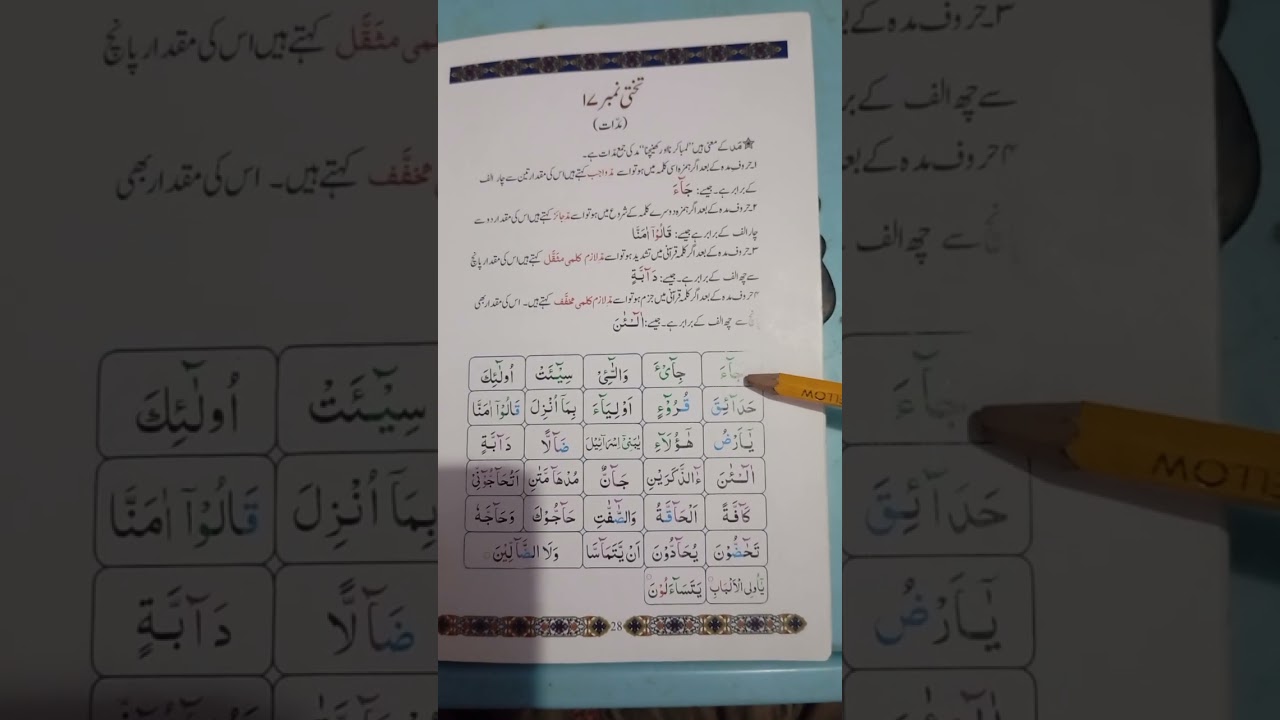 تختی نمبر ۱۷
(مدّات)
مَد کے معنٰی ہیں "لمبا کرنا اور کھینچنا" مد کی جمع مدّات ہے۔
۱۔حروف مدہ کے بعد اگر ہمزہ اسی کلمہ میں ہو تو اسے مدّ واجب کہتے ہیں اس کی مقدار تین سے چار الف
کے برابر ہے۔ جیسے: جَآءَ
۲۔حروف مدہ کے بعد اگر ہمزہ دوسرے کلمہ کے شروع میں ہو تو اسے مدّ جائز کہتے ہیں اس کی مقدار دو سے
چار الف کے برابر ہے جیسے: قَالُوْٓا اٰمَنَّا
۳۔حروف مدہ کے بعد اگر کلمہ قرآنی میں تشدید ہو تو اسے مدّ لازم کلمی مثقَّل کہتے ہیں اس کی مقدار پانچ
سے چھ الف کے برابر ہے۔ جیسے: دَآبَّةٍ
۴حروف مدہ کے بعد اگر کلمہ قرآنی میں جزم ہو تو اسے مدّ لازم کلمی مخفَّف کہتے ہیں۔ اس کی مقدار بھی
پانچ سے چھ الف کے برابر ہے۔ جیسے: آلْــٰٔنَ
جَآءَ جِایْٓءَ وَالّٰٓـِٔیْ سِیْٓـَٔتْ اُولٰٓئِكَ
حَدَآئِقَ قُرُوْٓءٍ اَوْلِیَآءَ بِمَآ اُنْزِلَ قَالُوْٓا اٰمَنَّا
یٰٓاَرْضُ هٰٓؤُلَآءِ یٰبَنِیْٓ اِسْرَآئِیْلَ ضَآلًّا دَآبَّةٍ
آلْــٰٔنَ ءٰٓالذَّكَرَیْنِ جَآنٌّ مُدْهَآمَّتٰنِ اَتُحَآجُّوْٓنِّیْ
كَآفَّةً اَلْحَآقَّةُ وَالصّٰٓفّٰتِ حَآجُّوْكَ وَحَآجَّهٗ
تَحٰٓضُّوْنَ یُحَآدُّوْنَ اَنْ یَّتَمَآسَّا وَلَا الضَّآلِّیْنَ
یٰٓاُولِی الْاَلْبَابِ یَتَسَآءَلُوْنَ
28